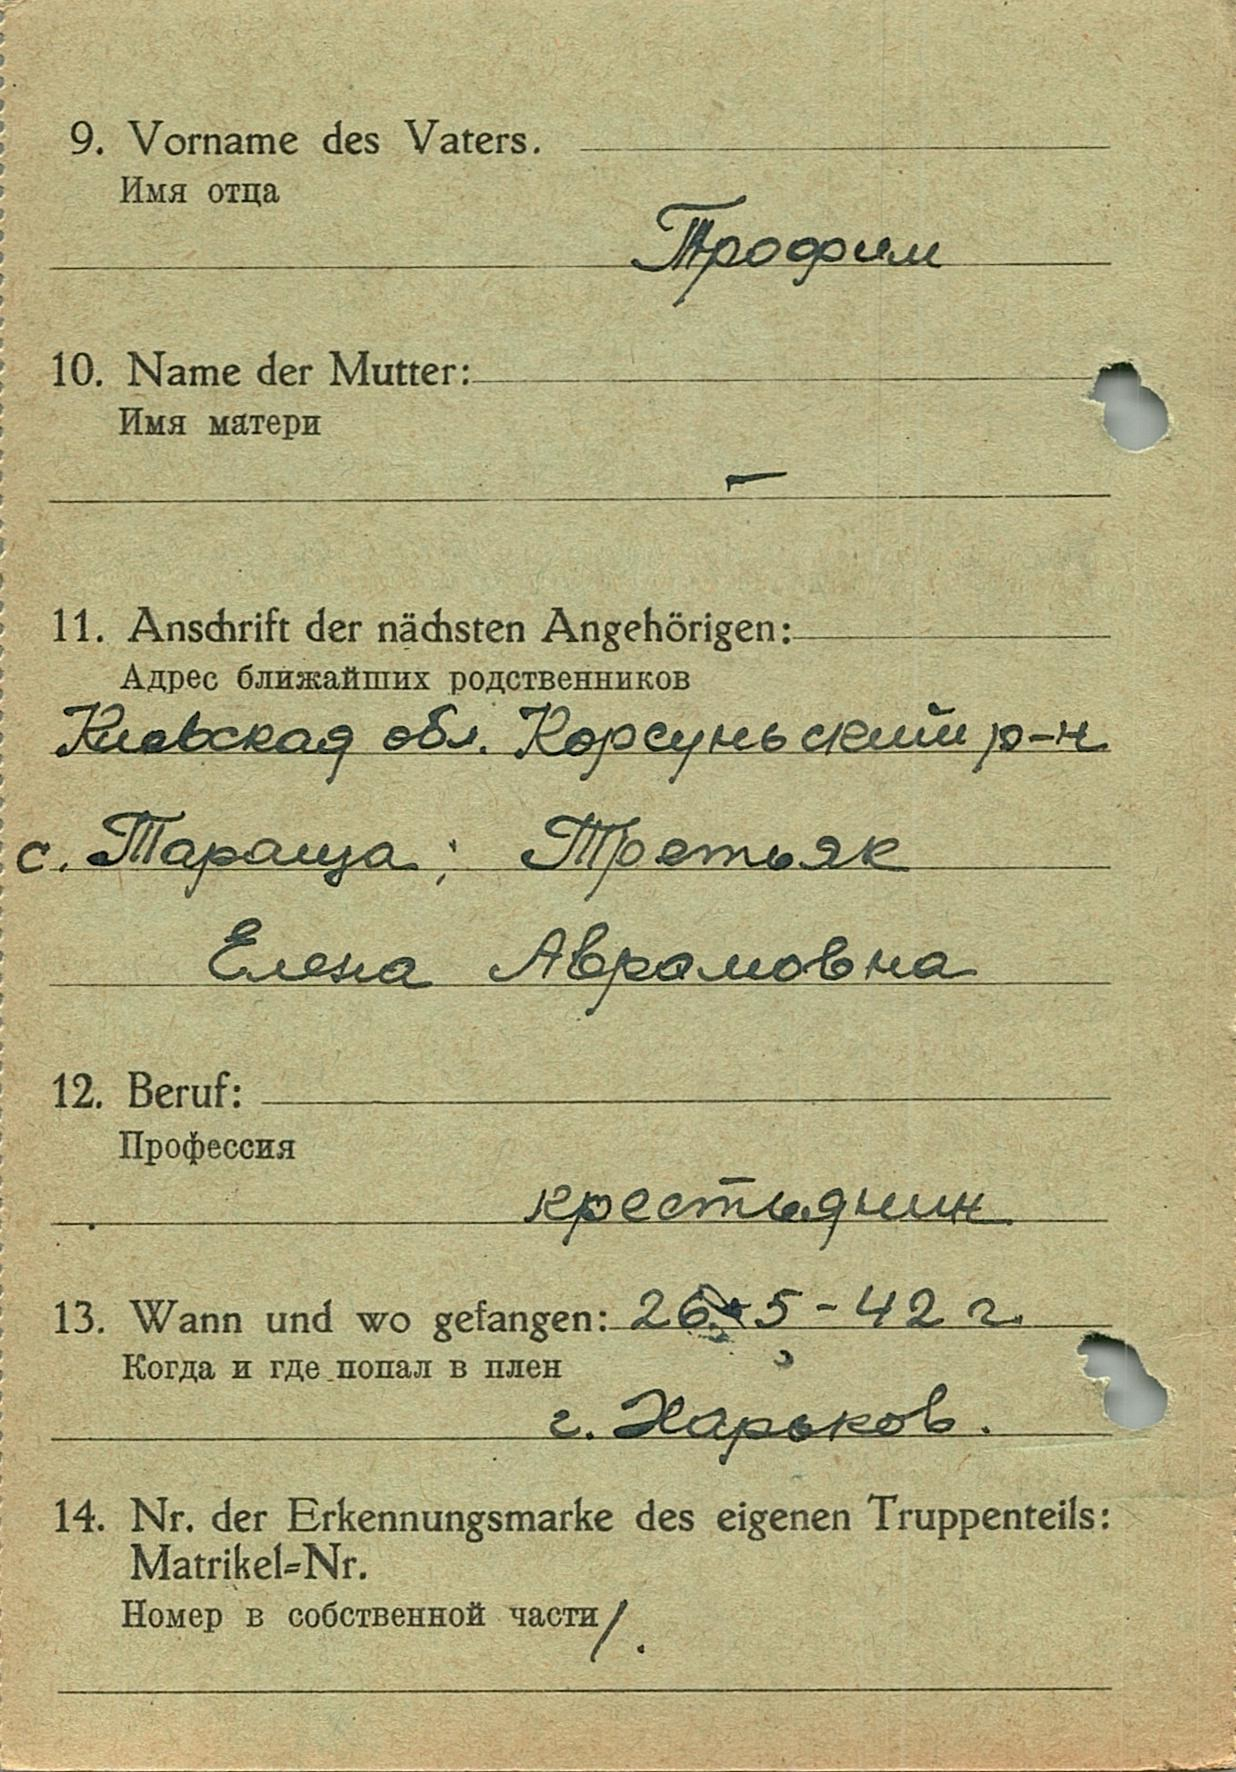 9. Vorname des Vaters.
Имя отца
Трофим
10. Name der Mutter:
Имя матери
–
11. Anschrift der nächsten Angehörigen:
Адрес ближайших родственников
Киевская обл. Корсуньский р-н
с. Тараща; Третьяк
Елена Аврамовна
12. Beruf:
Профессия
крестьянин
13. Wann und wo gefangen: 26-5-42 г.
Когда и где попал в плен
г. Харьков.
14. Nr. der Erkennungsmarke des eigenen Truppenteils:
Matrikel=Nr.
Номер в собственной части /.